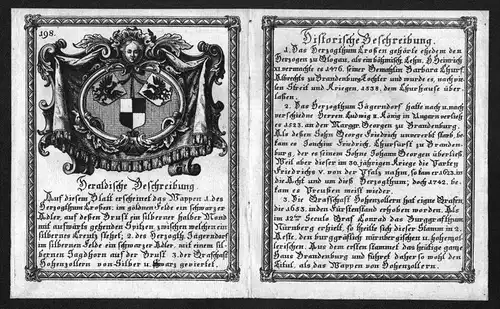 198.
Heraldische Beschreibung
Auf diesem Blatt erscheinet das Wappen 1. des
Herzogthum Croßen; im güldnen Felde ein schwarzer
Adler, auf deßen Brust ein silberner halber Mond
mit aufwärts gehenden Spitzen, zwischen welchen ein
silbernes Creutz stehet; 2. des Herzogth. Jägerndorf
im silbernen Felde ein schwarzer Adler, mit einem sil-
bernen Jagdhorn auf der Brust 3. der Grafschaft
Hohenzollern von Silber u. schwarz gevieret.
Historische Beschreibung.
1. Das Herzogthum Croßen gehörte ehedem den
Herzogen zu Glogau, als ein böhmisch. Lehn. H. Heinrich
XI. vermachte es 1476. seiner Gemahlin Barbara Churf.
Albrechts zu Brandenburg Tochter und wurde es, nach vie-
len Streit und Kriegen, 1538. dem Churhause über-
laßen.
2. Das Herzogthum Jägerndorf hatte nach u. nach
verschiedne Herren. Ludwig 2. König in Ungarn verließ
es 1523. an den Marggr. Georgen zu Brandenburg.
Als deßen Sohn George Friedrich unvererbt starb, be-
kam es Joachim Friedrich Churfürst zu Brandenb-
burg, der es seinem Sohne Johann Georgen überließ.
Weil aber dieser im 30. jährigen Kriege die Partey
Friedrichs V. von der Pfalz nahm, so kam er 1623. in
die Acht und um dies Herzogthum; doch 1742. be-
kam es Preußen meist wieder.
3. Die Grafschaft Hohenzollern hat eigne Grafen
die 1653. in den Fürstenstand erhoben worden. Als
im 12ten Seculo Graf Conrad das Burggrafthum
Nürnberg erhielt, so theilte sich dieser Stamm in 2.
Aeste, den burggräflich nürnbergischen u. hohenzol-
lerischen. Aus dem ersten stammet das heutige ganze
Haus Brandenburg und führet daher so wohl den
Titul, als das Wappen von Hohenzollern.